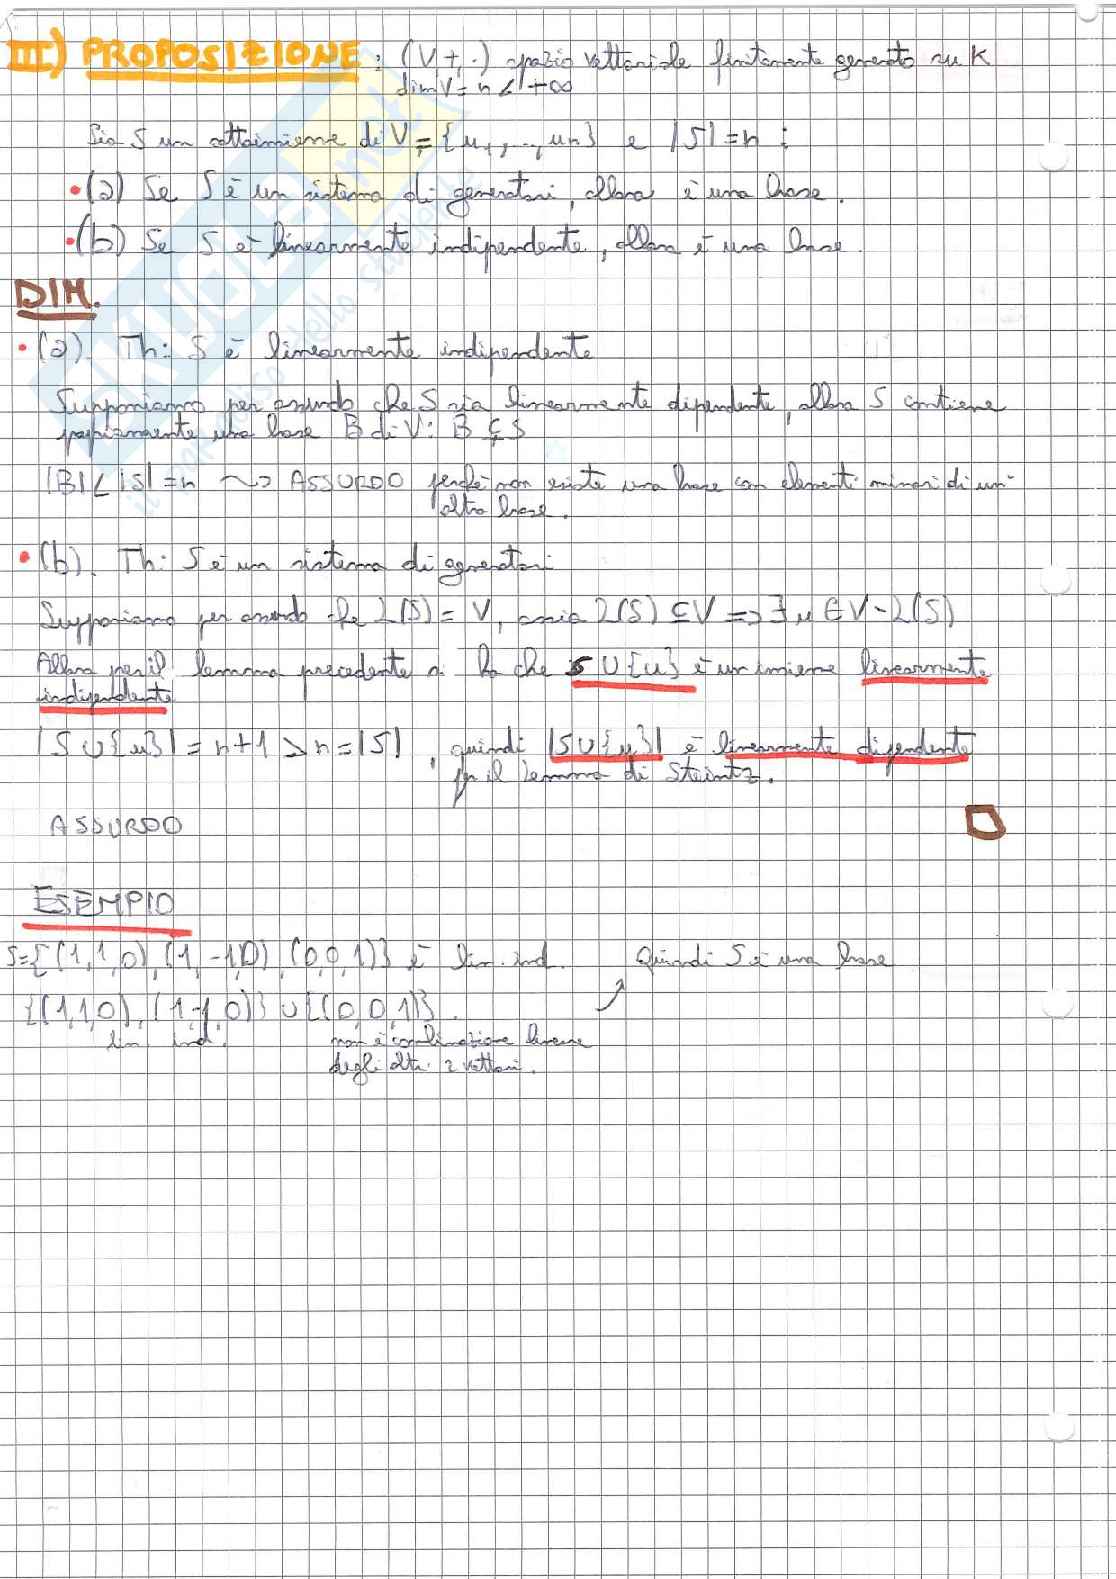 III) PROPOSIZIONE : (V,+,·) spazio vettoriale finitamente generato su K
dim V = n < +∞
Sia S un sottoinsieme di V, = {u₁, ..., uₙ} e |S| = n :
• (a) Se S è un sistema di generatori, allora è una base.
• (b) Se S è linearmente indipendente, allora è una base.
DIM.
• (a). Th: S è linearmente indipendente
Supponiamo per assurdo che S sia linearmente dipendente, allora S contiene
propriamente una base B di V: B ⊊ S
|B| < |S| = n ⤳ ASSURDO perché non esiste una base con elementi minori di un'
altra base.
• (b). Th: S è un sistema di generatori
Supponiamo per assurdo che L(S) = V, ossia L(S) ⊆ V => ∃ u ∈ V - L(S)
Allora per il lemma precedente si ha che S ∪ {u} è un insieme linearmente
indipendente
|S ∪ {u}| = n+1 > n = |S| , quindi |S ∪ {u}| è linearmente dipendente
per il lemma di Steintz.
ASSURDO
ESEMPIO
S = {(1,1,0), (1,-1,0), (0,0,1)} è lin. ind. Quindi S è una base
{(1,1,0), (1,-1,0)} ∪ {(0,0,1)}.
lin ind. non è combinazione lineare
degli altri 2 vettori.
SKUOLA.net
il paradiso dello studente